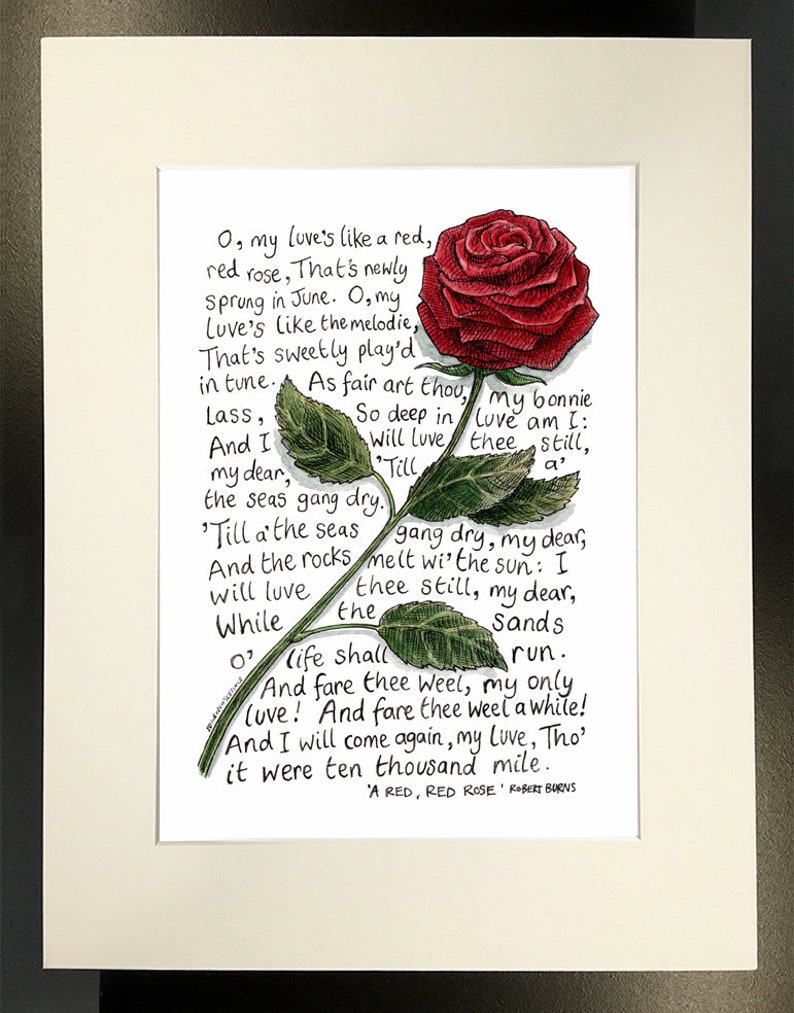 O, my luve's like a red,
red rose, That's newly
sprung in June. O, my
luve's like the melodie,
That's sweetly play'd
in tune. As fair art thou, my bonnie
lass, So deep in luve am I:
And I will luve thee still,
my dear, 'Till a'
the seas gang dry.
'Till a' the seas gang dry, my dear,
And the rocks melt wi' the sun: I
will luve thee still, my dear,
While the sands
o' life shall run.
And fare thee weel, my only
luve! And fare thee weel awhile!
And I will come again, my luve, Tho'
it were ten thousand mile.
'A RED, RED ROSE' ROBERT BURNS